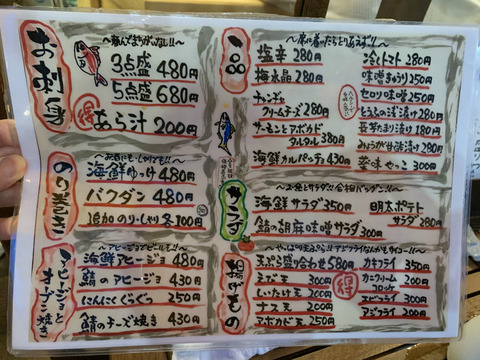 お刺身
～選んでまちがいなし!!～
3点盛 480円
5点盛 680円
得 あら汁 200円
のり巻き
海鮮ゆっけ 480円
バクダン 480円
追加 のり・しゃり 各100円
アヒージョとオーブン焼き
～アヒージョでビールも!!～
海鮮アヒージョ 480円
鯖のアヒージョ 430円
にんにくぐつぐつ 250円
鯖のチーズ焼き 430円
一品
～席に着いたらとりあえず!!～
塩辛 280円
梅水晶 280円
チャンジャ
クリームチーズ 280円
サーモンとアボカド
タルタル 380円
海鮮カルパッチョ 430円
冷しトマト 280円
味噌きゅうり 250円
セロリ味噌 250円
長芋わさび漬け 180円
みょうが甘酢漬け 280円
薬味やっこ 300円
サラダ
海鮮サラダ 350円
鯖の胡麻味噌サラダ 300円
明太ポテト
サラダ 280円
揚げもの
天ぷら盛り合わせ 580円
えび天 300円
しいたけ天 200円
ナス天 200円
アボカド天 250円
カキフライ 350円
得 カニクリーム
コロッケ 200円
エビフライ 300円
アジフライ 200円